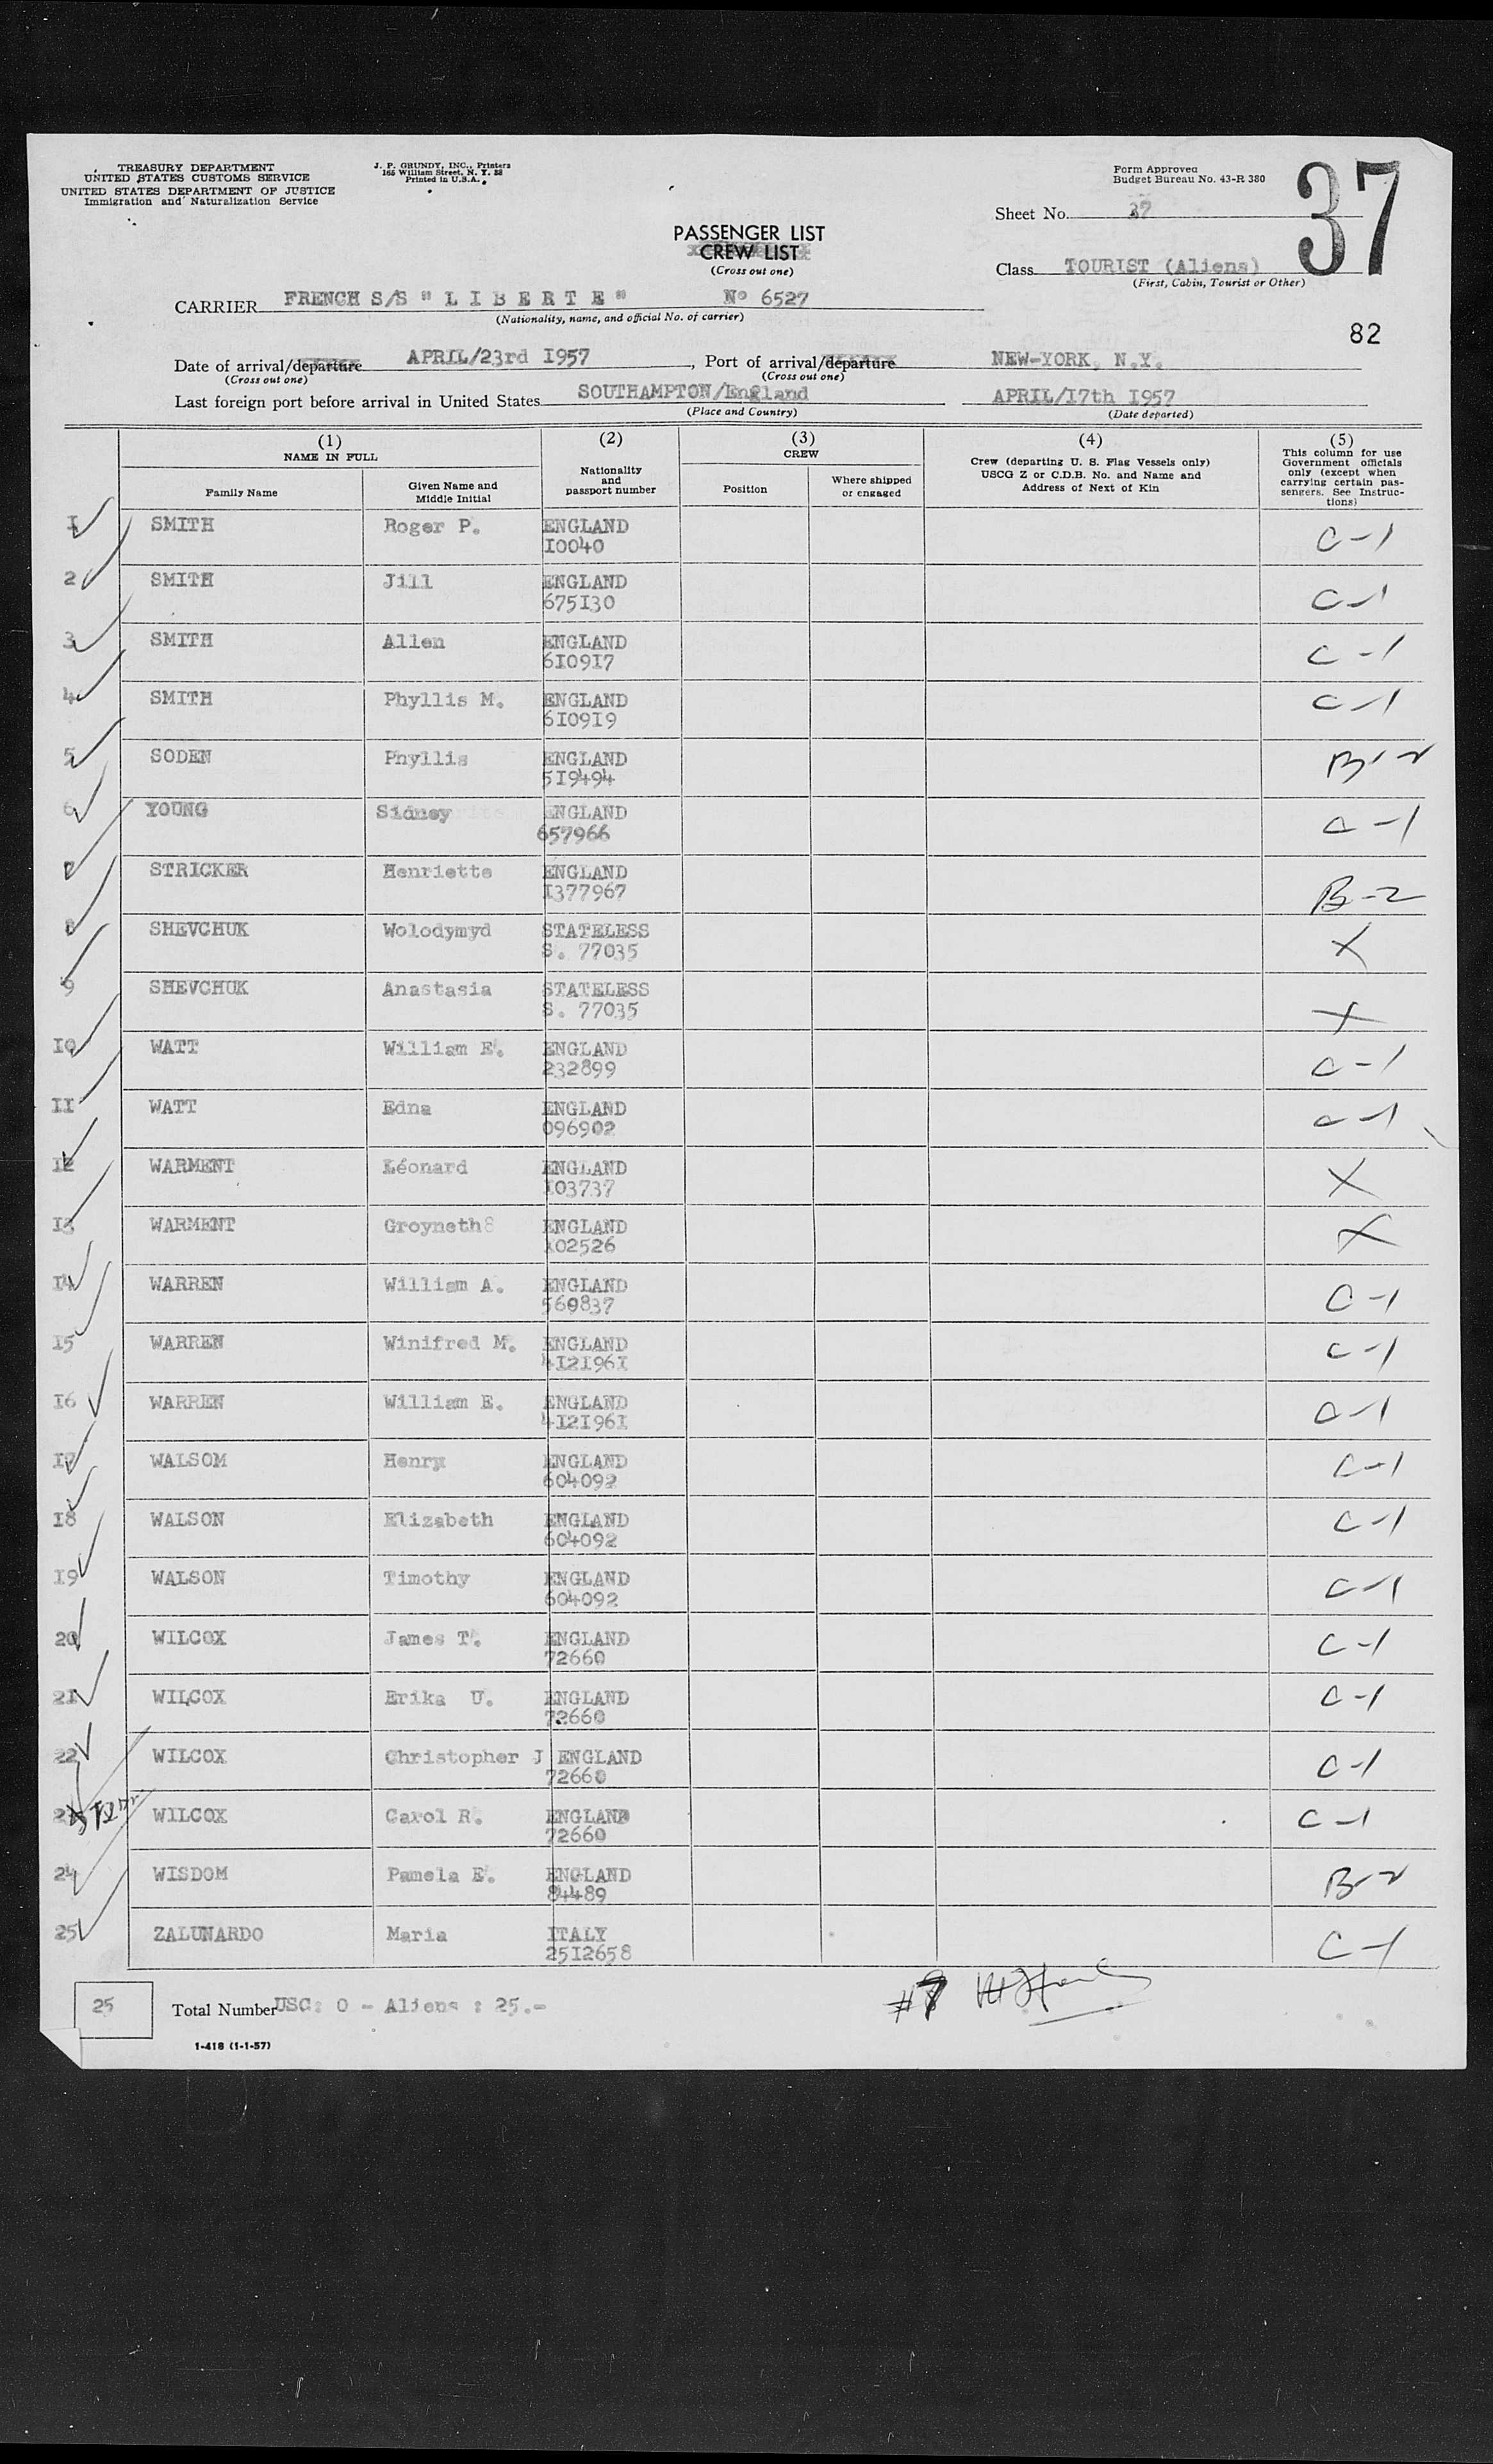 TREASURY DEPARTMENT
UNITED STATES CUSTOMS SERVICE
UNITED STATES DEPARTMENT OF JUSTICE
Immigration and Naturalization Service
J. P. GRUNDY, INC., Printers
165 William Street, N. Y. 38
Printed in U.S.A.
Form Approved
Budget Bureau No. 43-R 380
37
Sheet No. 37
PASSENGER LIST
CREW LIST
(Cross out one)
Class TOURIST (Aliens)
(First, Cabin, Tourist or Other)
CARRIER FRENCH S/S " L I B E R T E " No 6527
(Nationality, name, and official No. of carrier)
82
Date of arrival/departure APRIL/23rd I957, Port of arrival/departure NEW-YORK, N.Y.
(Cross out one) (Cross out one)
Last foreign port before arrival in United States SOUTHAMPTON/England APRIL/I7th I957
(Place and Country) (Date departed)
(1) (2) (3) (4) (5)
NAME IN FULL
Family Name
Given Name and
Middle Initial
Nationality
and
passport number
CREW
Position
Where shipped
or engaged
Crew (departing U. S. Flag Vessels only)
USCG Z or C.D.B. No. and Name and
Address of Next of Kin
This column for use
Government officials
only (except when
carrying certain pas-
sengers. See Instruc-
tions)
I SMITH Roger P. ENGLAND C-1
I0040
2 SMITH Jill ENGLAND C-1
675I30
3 SMITH Allen ENGLAND C-1
6I09I7
4 SMITH Phyllis M. ENGLAND C-1
6I09I9
5 SODEN Phyllis ENGLAND B-2
5I9494
6 YOUNG Sidney ENGLAND C-1
657966
7 STRICKER Henriette ENGLAND B-2
I377967
8 SHEVCHUK Wolodymyd STATELESS X
S. 77035
9 SHEVCHUK Anastasia STATELESS X
S. 77035
I0 WATT William E. ENGLAND C-1
232899
II WATT Edna ENGLAND C-1
096902
I2 WARMENT Léonard ENGLAND X
I03737
I3 WARMENT Groyneth ENGLAND X
I02526
I4 WARREN William A. ENGLAND C-1
569837
I5 WARREN Winifred M. ENGLAND C-1
4I2I96I
I6 WARREN William E. ENGLAND C-1
4I2I96I
I7 WALSOM Henry ENGLAND C-1
604092
I8 WALSON Elizabeth ENGLAND C-1
604092
I9 WALSON Timothy ENGLAND C-1
604092
20 WILCOX James T. ENGLAND C-1
72660
2I WILCOX Erika U. ENGLAND C-1
72660
22 WILCOX Christopher J ENGLAND C-1
72660
WILCOX Carol R. ENGLAND C-1
72660
24 WISDOM Pamela E. ENGLAND B-2
84489
25 ZALUNARDO Maria ITALY C-1
25I2658
25 Total Number USC: 0 - Aliens : 25.-
1-418 (1-1-57)